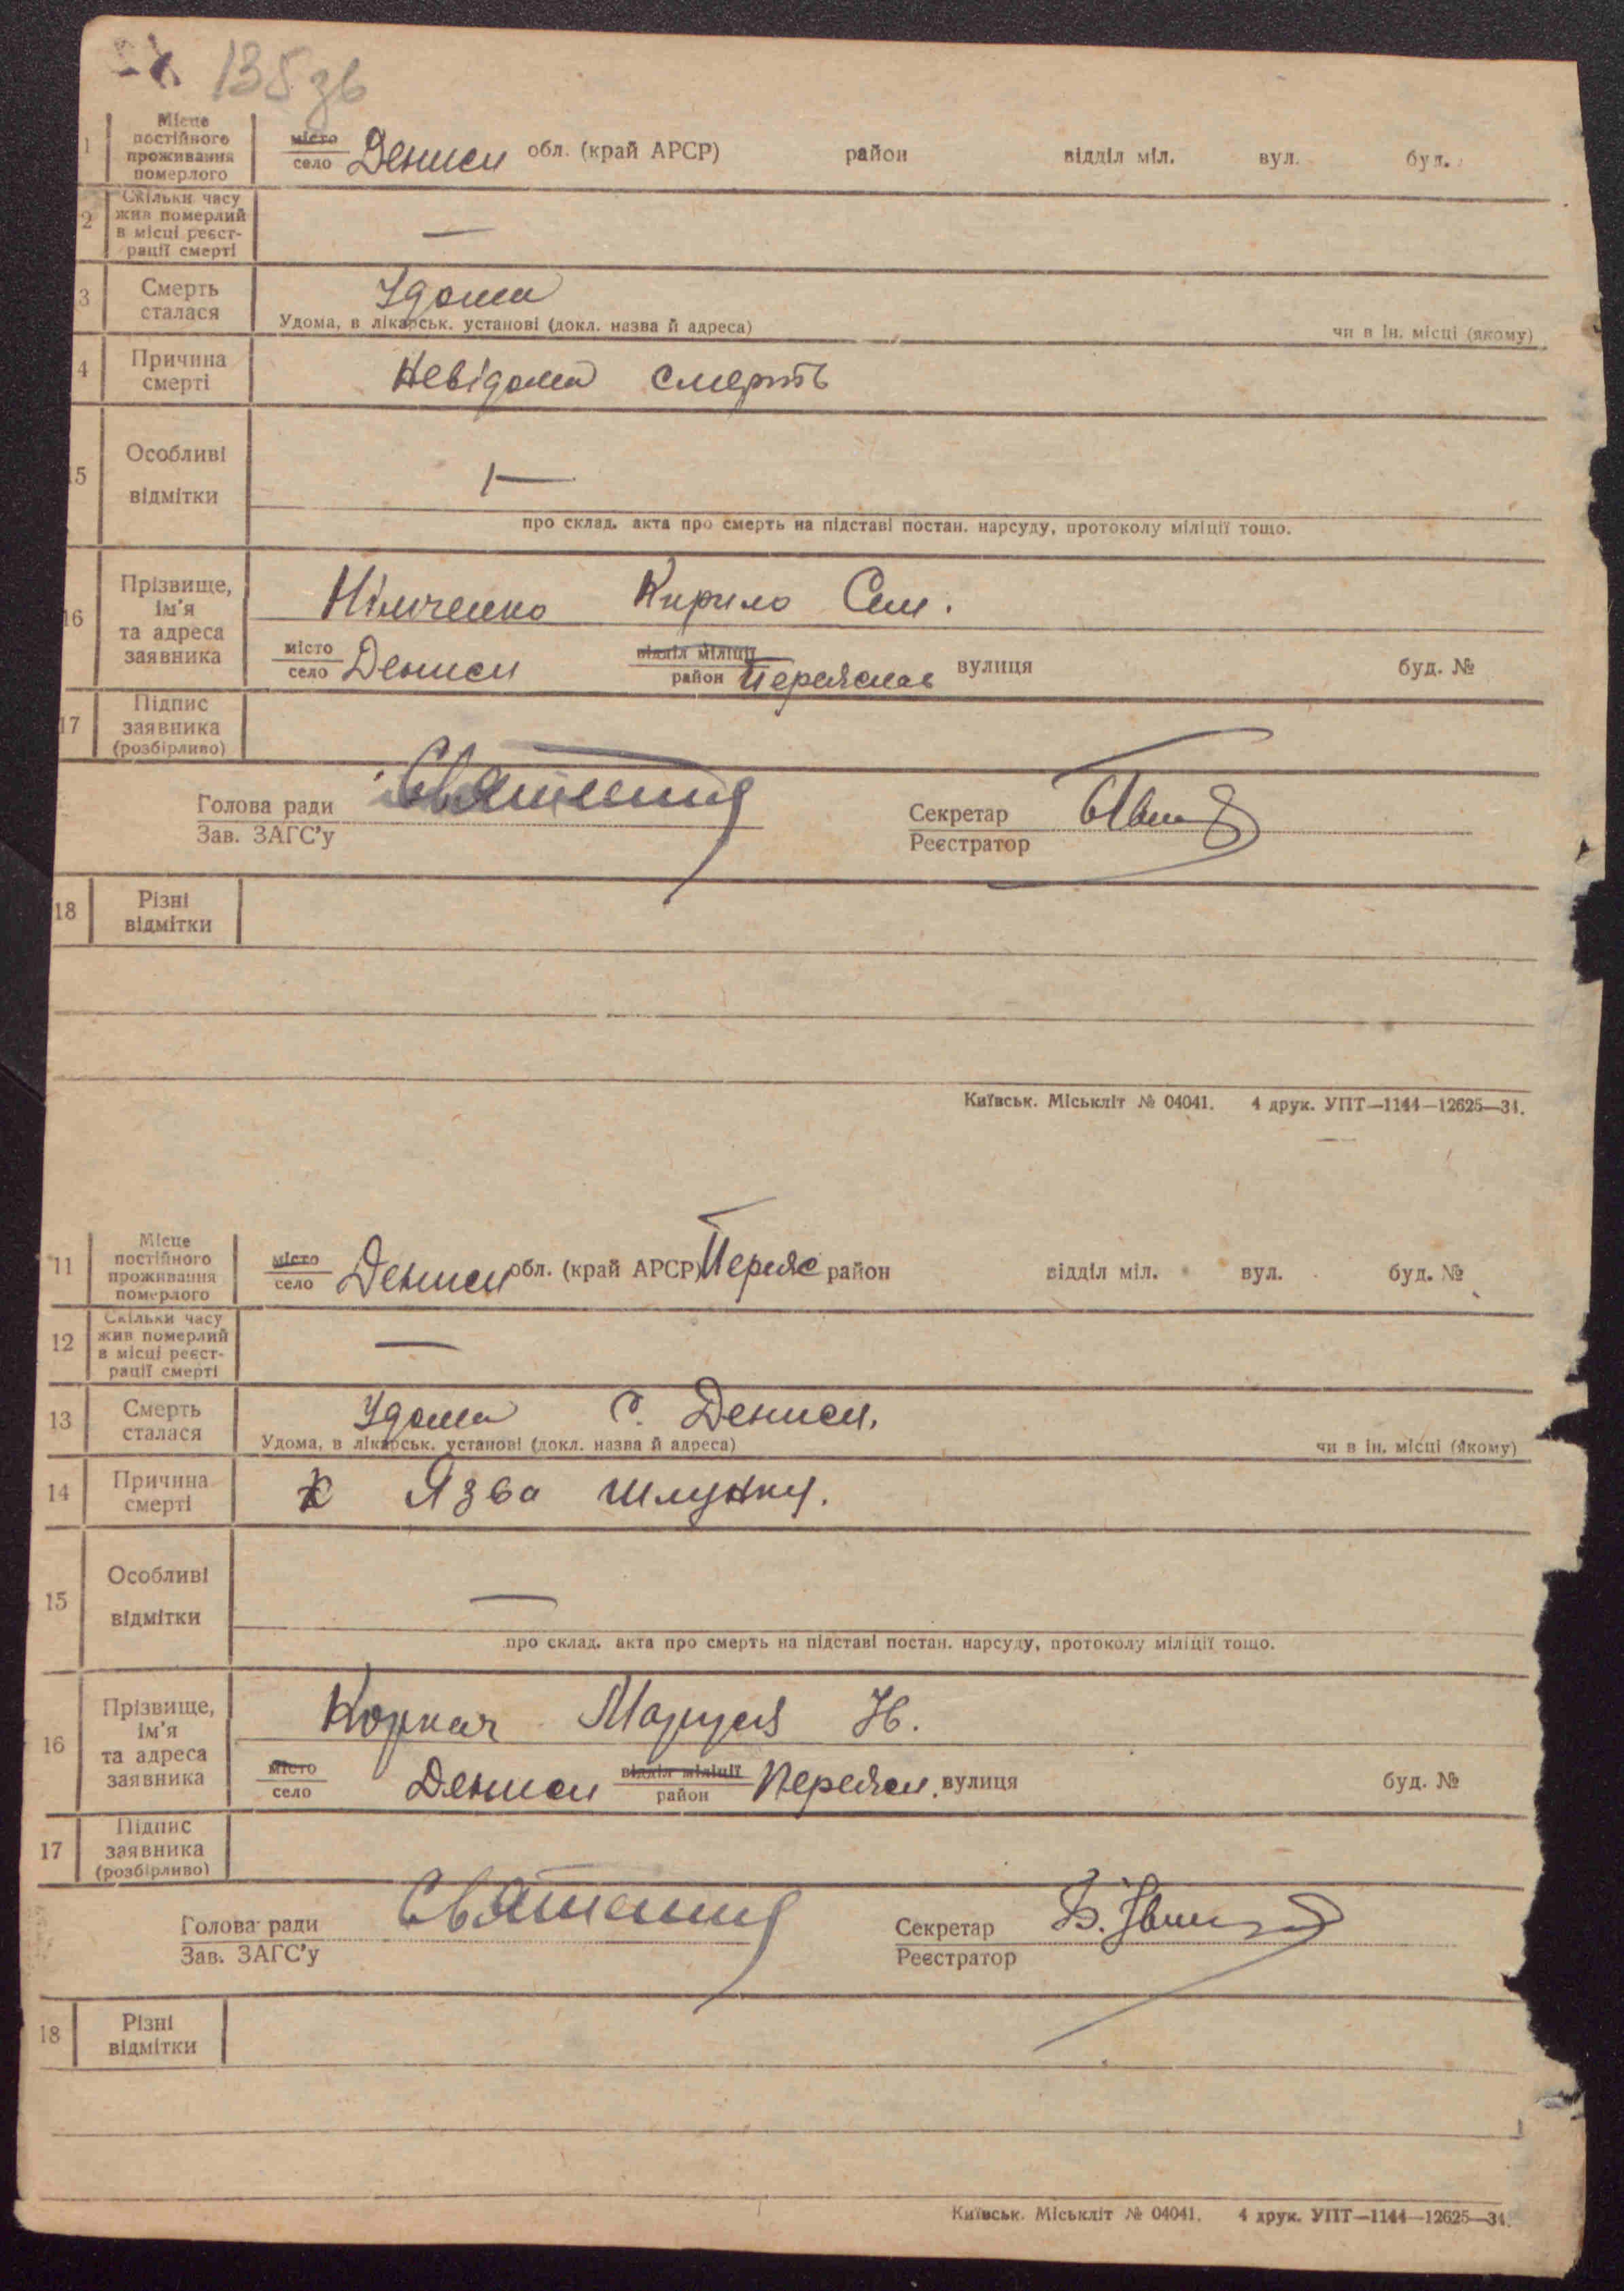 135 зв
1 Місце постійного проживання померлого місто село Дениси обл. (край АРСР) район відділ міл. вул. буд.
2 Скільки часу жив померлий в місці реєстрації смерті —
3 Смерть сталася Удома
Удома, в лікарськ. установі (докл. назва й адреса) чи в ін. місці (якому)
4 Причина смерті Невідома смерть
5 Особливі відмітки —
про склад. акта про смерть на підставі постан. нарсуду, протоколу міліції тощо.
16 Прізвище, ім'я та адреса заявника Кирило Сем.
місто село Дениси відділ міліції район Переяслав вулиця буд. №
17 Підпис заявника (розбірливо)
Голова ради Секретар
Зав. ЗАГС'у Реєстратор
18 Різні відмітки
Київськ. Міськліт № 04041. 4 друк. УПТ—1144—12625—34.
11 Місце постійного проживання померлого місто село Дениси обл. (край АРСР) Переяс район відділ міл. вул. буд. №
12 Скільки часу жив померлий в місці реєстрації смерті —
13 Смерть сталася Удома с. Дениси.
Удома, в лікарськ. установі (докл. назва й адреса) чи в ін. місці (якому)
14 Причина смерті Язва шлунку.
15 Особливі відмітки —
про склад. акта про смерть на підставі постан. нарсуду, протоколу міліції тощо.
16 Прізвище, ім'я та адреса заявника Коркач Маруся Н.
місто село Дениси відділ міліції район Переясл. вулиця буд. №
17 Підпис заявника (розбірливо)
Голова ради Секретар
Зав. ЗАГС'у Реєстратор
18 Різні відмітки
Київськ. Міськліт № 04041. 4 друк. УПТ—1144—12625—34.